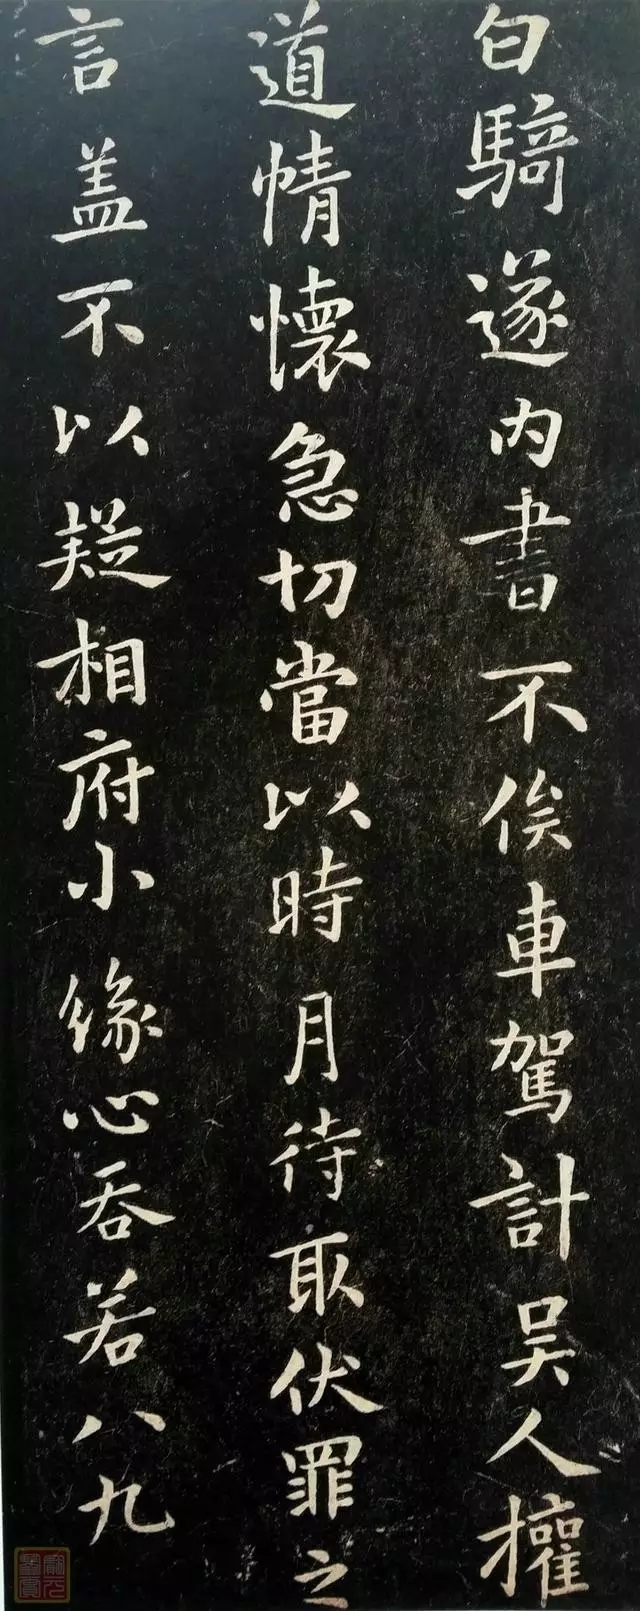 白騎遂內書不俟車駕計吴人權
道情懷急切當以時月待取伏罪之
言盖不以疑相府小緣心吞若八九